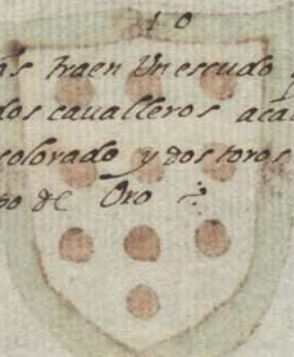 10
traen Un escudo
dos caualleros aca
colorado y dos toros
po de Oro